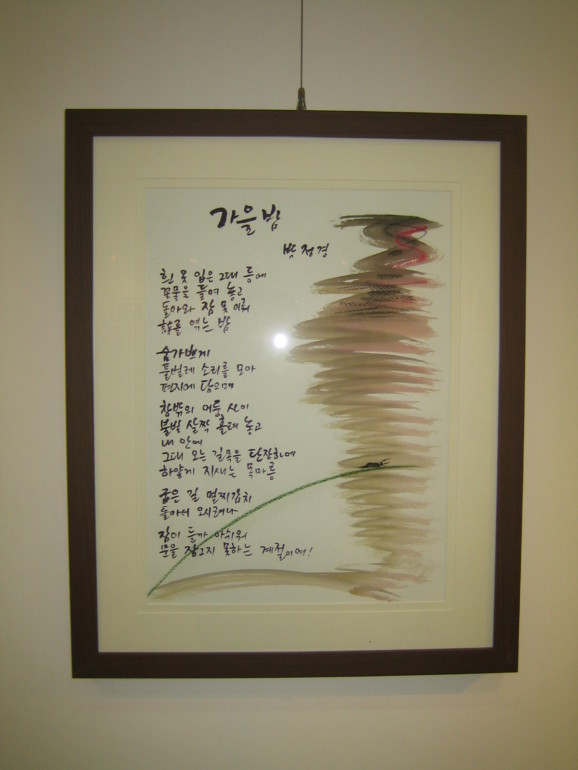 가을밤
박정경
흰 옷 입은 그대 등에
꽃물을 들여 놓고
돌아와 잠 못 이뤄
詩를 엮는 밤
숨가쁘게
풀벌레 소리를 모아
편지에 담으며
창밖의 어둠 사이
불빛 살짝 걸래 놓고
내 안에
그대 오는 길목을 단장하여
하얗게 지새는 목마름
굽은 길 멀찌감치
돌아서 오시려나
잠이 들까 아쉬워
문을 잠그지 못하는 계절이여!